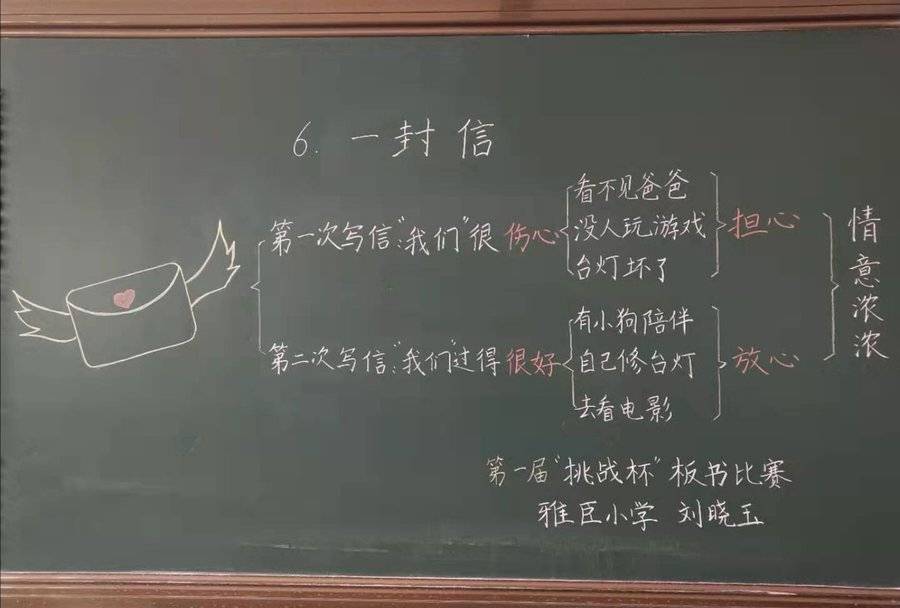 6. 一封信
第一次写信:“我们”很伤心
看不见爸爸
没人玩游戏
台灯坏了
担心
第二次写信:“我们”过得很好
有小狗陪伴
自己修台灯
去看电影
放心
情意浓浓
第一届“挑战杯”板书比赛
雅臣小学 刘晓玉